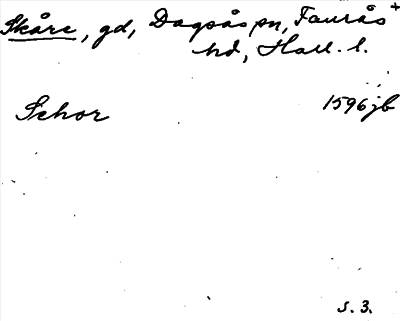 Skåre, gd, Dagsås sn, Faurås +
hd, Hall. l.
Schor 1596 jb
s. 3.